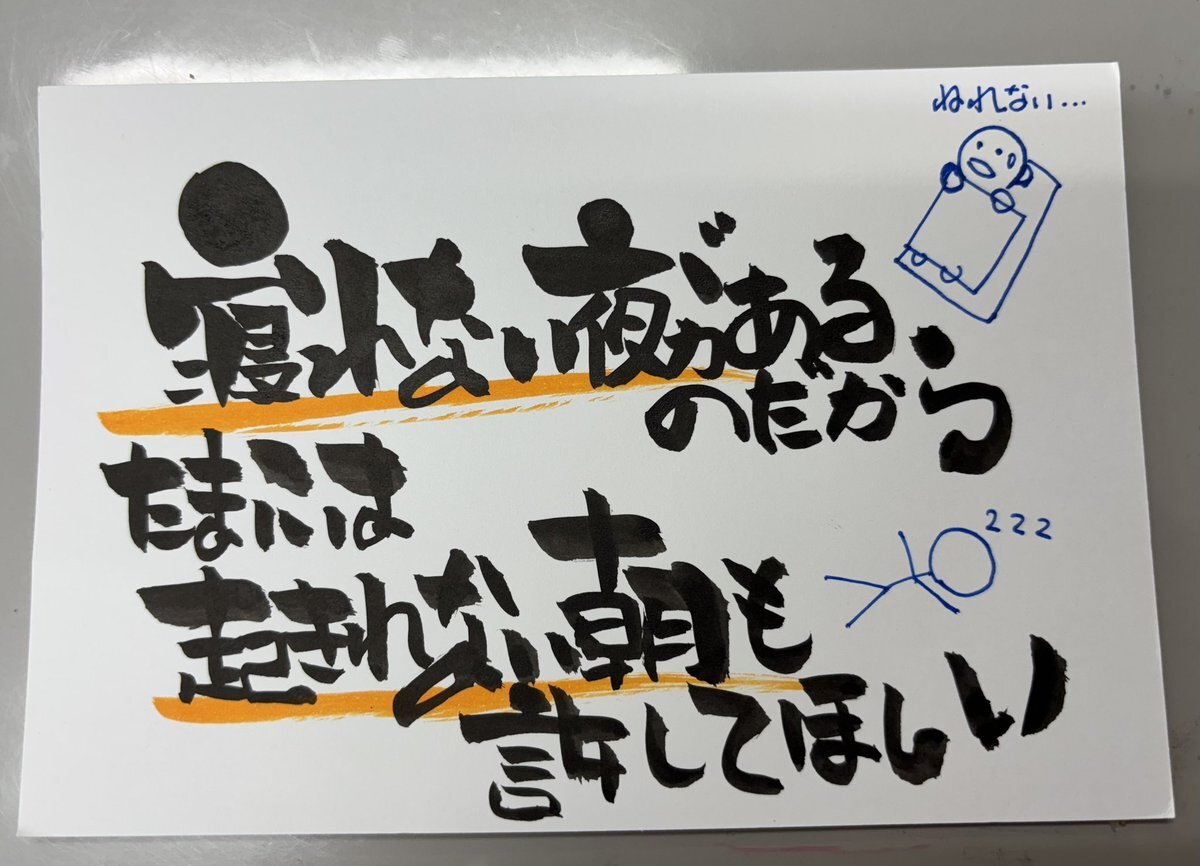 ねれない…
寝れない夜がある
のだから
たまには
起きれない朝も
許してほしい
zzz